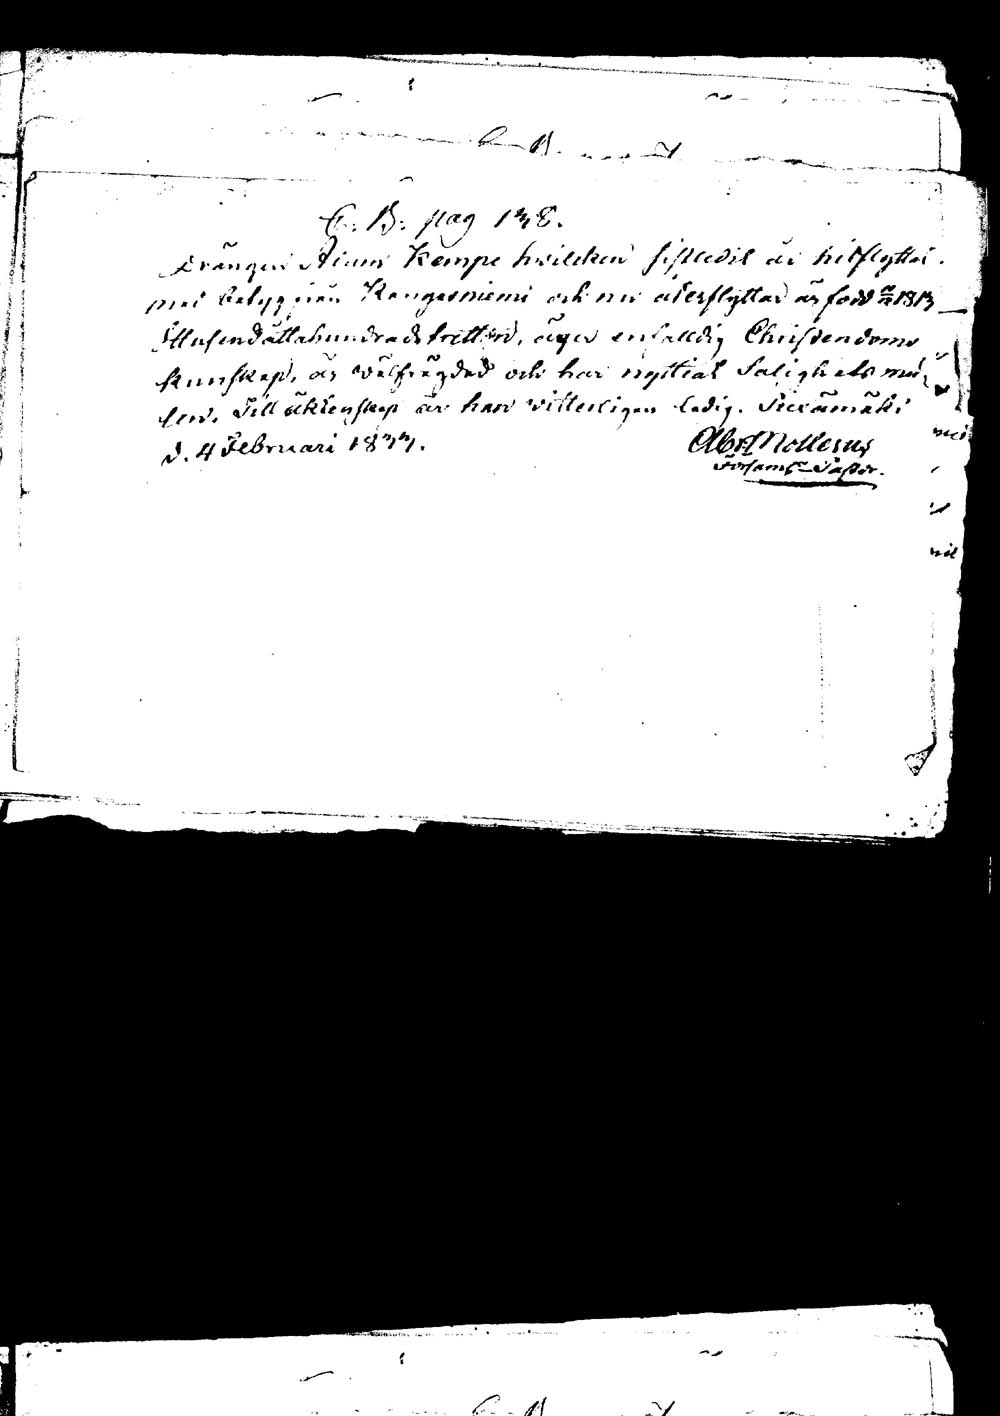 C. B. pag 138.
Drängen Adam Kempe hvilken sistledit år hitflyttat
med betyg från Kangasniemi och nu återflyttar är född 1813
Ettusendåttahundradetretton, äger enfaldig Christendoms
kunskap, är välfrägdad och har nyttjat Salighets med-
len. Till äktenskap är han vitterligen ledig. Piexämäki
d. 4 Februari 1833.
Abr. Mollerus
Församl. Pastor.